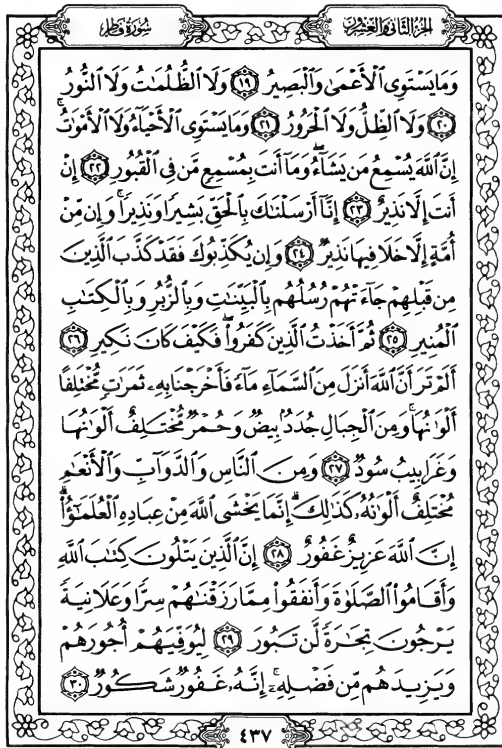 الجزء الثاني والعشرون
سورة فاطر
وَمَا يَسْتَوِى ٱلْأَعْمَىٰ وَٱلْبَصِيرُ ﴿١٩﴾ وَلَا ٱلظُّلُمَـٰتُ وَلَا ٱلنُّورُ
﴿٢٠﴾ وَلَا ٱلظِّلُّ وَلَا ٱلْحَرُورُ ﴿٢١﴾ وَمَا يَسْتَوِى ٱلْأَحْيَآءُ وَلَا ٱلْأَمْوَٰتُ ۚ
إِنَّ ٱللَّهَ يُسْمِعُ مَن يَشَآءُ ۖ وَمَآ أَنتَ بِمُسْمِعٍ مَّن فِى ٱلْقُبُورِ ﴿٢٢﴾ إِنْ
أَنتَ إِلَّا نَذِيرٌ ﴿٢٣﴾ إِنَّآ أَرْسَلْنَـٰكَ بِٱلْحَقِّ بَشِيرًا وَنَذِيرًا ۚ وَإِن مِّنْ
أُمَّةٍ إِلَّا خَلَا فِيهَا نَذِيرٌ ﴿٢٤﴾ وَإِن يُكَذِّبُوكَ فَقَدْ كَذَّبَ ٱلَّذِينَ
مِن قَبْلِهِمْ جَآءَتْهُمْ رُسُلُهُم بِٱلْبَيِّنَـٰتِ وَبِٱلزُّبُرِ وَبِٱلْكِتَـٰبِ
ٱلْمُنِيرِ ﴿٢٥﴾ ثُمَّ أَخَذْتُ ٱلَّذِينَ كَفَرُوا۟ ۖ فَكَيْفَ كَانَ نَكِيرِ ﴿٢٦﴾
أَلَمْ تَرَ أَنَّ ٱللَّهَ أَنزَلَ مِنَ ٱلسَّمَآءِ مَآءً فَأَخْرَجْنَا بِهِۦ ثَمَرَٰتٍ مُّخْتَلِفًا
أَلْوَٰنُهَا ۚ وَمِنَ ٱلْجِبَالِ جُدَدٌۢ بِيضٌ وَحُمْرٌ مُّخْتَلِفٌ أَلْوَٰنُهَا
وَغَرَابِيبُ سُودٌ ﴿٢٧﴾ وَمِنَ ٱلنَّاسِ وَٱلدَّوَآبِّ وَٱلْأَنْعَـٰمِ
مُخْتَلِفٌ أَلْوَٰنُهُۥ كَذَٰلِكَ ۗ إِنَّمَا يَخْشَى ٱللَّهَ مِنْ عِبَادِهِ ٱلْعُلَمَـٰٓؤُا۟ ۗ
إِنَّ ٱللَّهَ عَزِيزٌ غَفُورٌ ﴿٢٨﴾ إِنَّ ٱلَّذِينَ يَتْلُونَ كِتَـٰبَ ٱللَّهِ
وَأَقَامُوا۟ ٱلصَّلَوٰةَ وَأَنفَقُوا۟ مِمَّا رَزَقْنَـٰهُمْ سِرًّا وَعَلَانِيَةً
يَرْجُونَ تِجَـٰرَةً لَّن تَبُورَ ﴿٢٩﴾ لِيُوَفِّيَهُمْ أُجُورَهُمْ
وَيَزِيدَهُم مِّن فَضْلِهِۦٓ ۚ إِنَّهُۥ غَفُورٌ شَكُورٌ ﴿٣٠﴾
٤٣٧